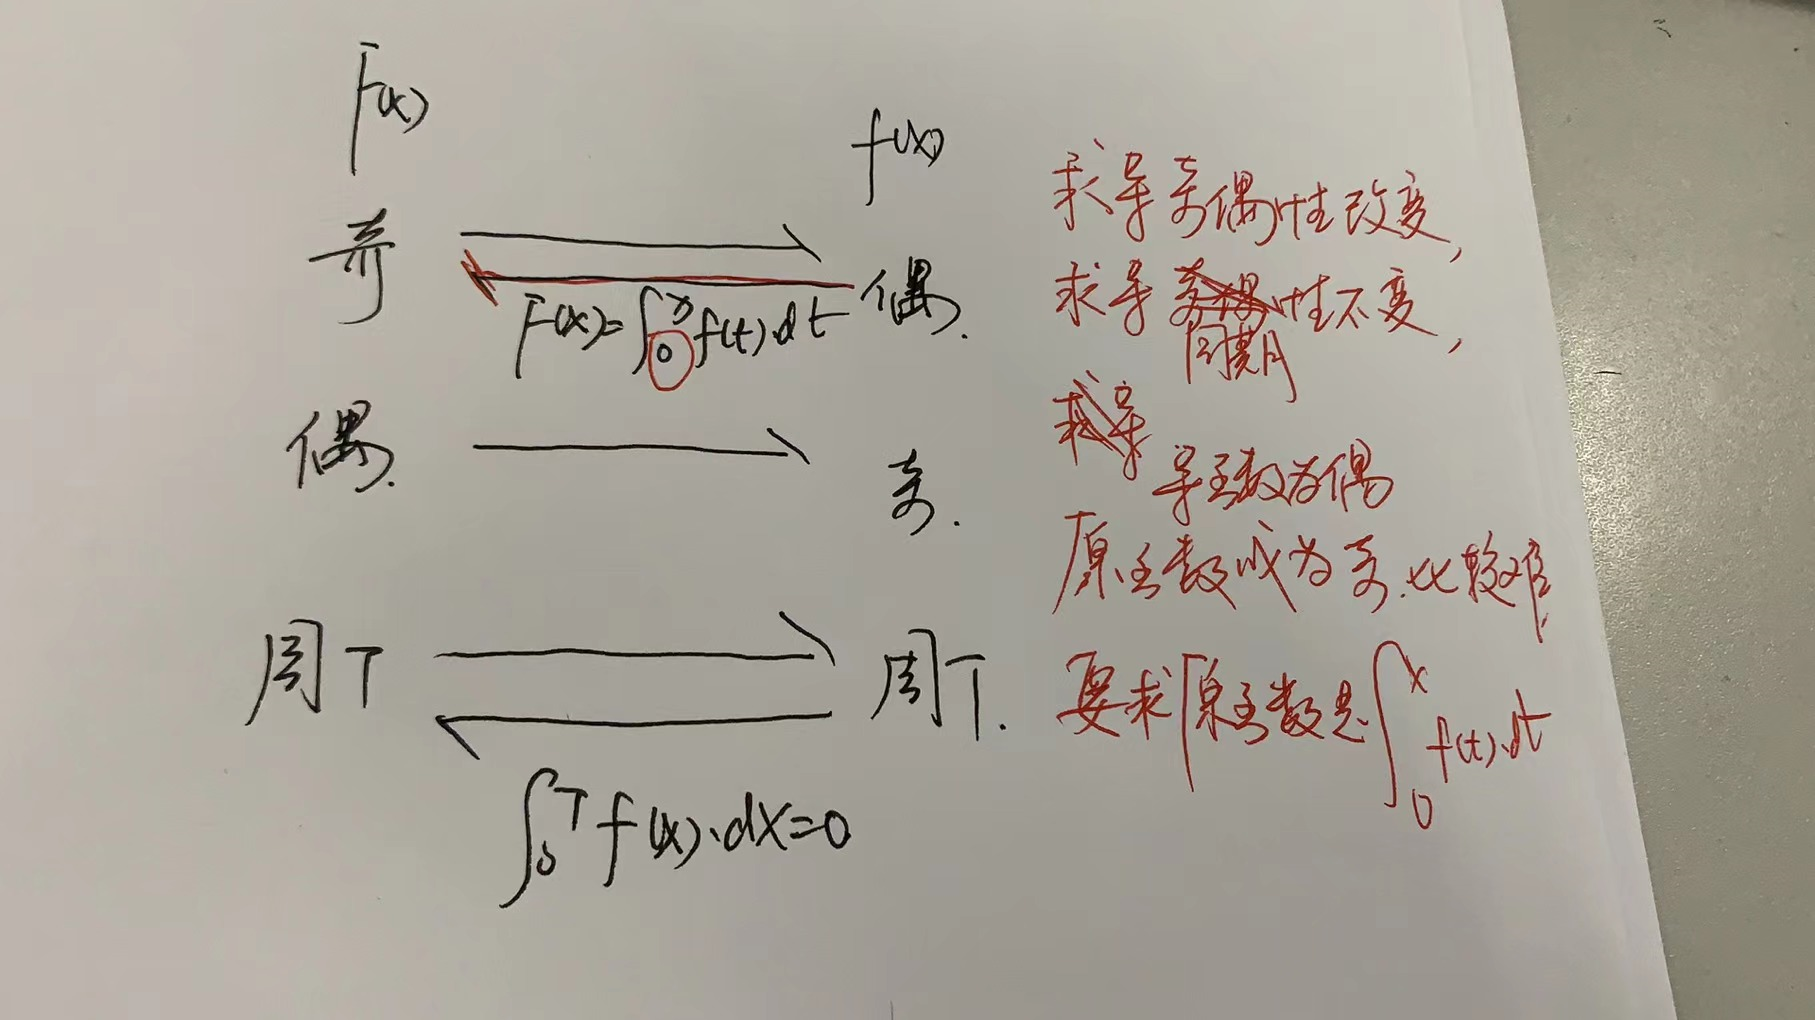 F(x)
f(x)
奇
偶.
F(x)=∫₀ˣf(t)·dt
偶.
奇.
周T
周T.
∫₀ᵀf(x)·dx=0
求导奇偶性改变,
求导周期性不变,
导函数为偶
原函数成为奇.比较难
要求原函数是∫₀ˣf(t)·dt